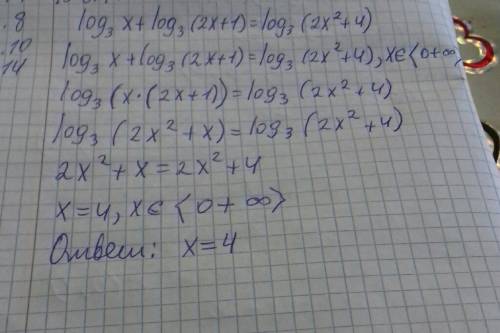 .8 log₃ x + log₃ (2x+1) = log₃ (2x²+4)
.10 log₃ x + log₃ (2x+1) = log₃ (2x²+4), x∈⟨0+∞⟩
14 log₃ (x·(2x+1)) = log₃ (2x²+4)
log₃ (2x²+x) = log₃ (2x²+4)
2x² + x = 2x² + 4
x = 4, x∈⟨0+∞⟩
Ответ: x=4